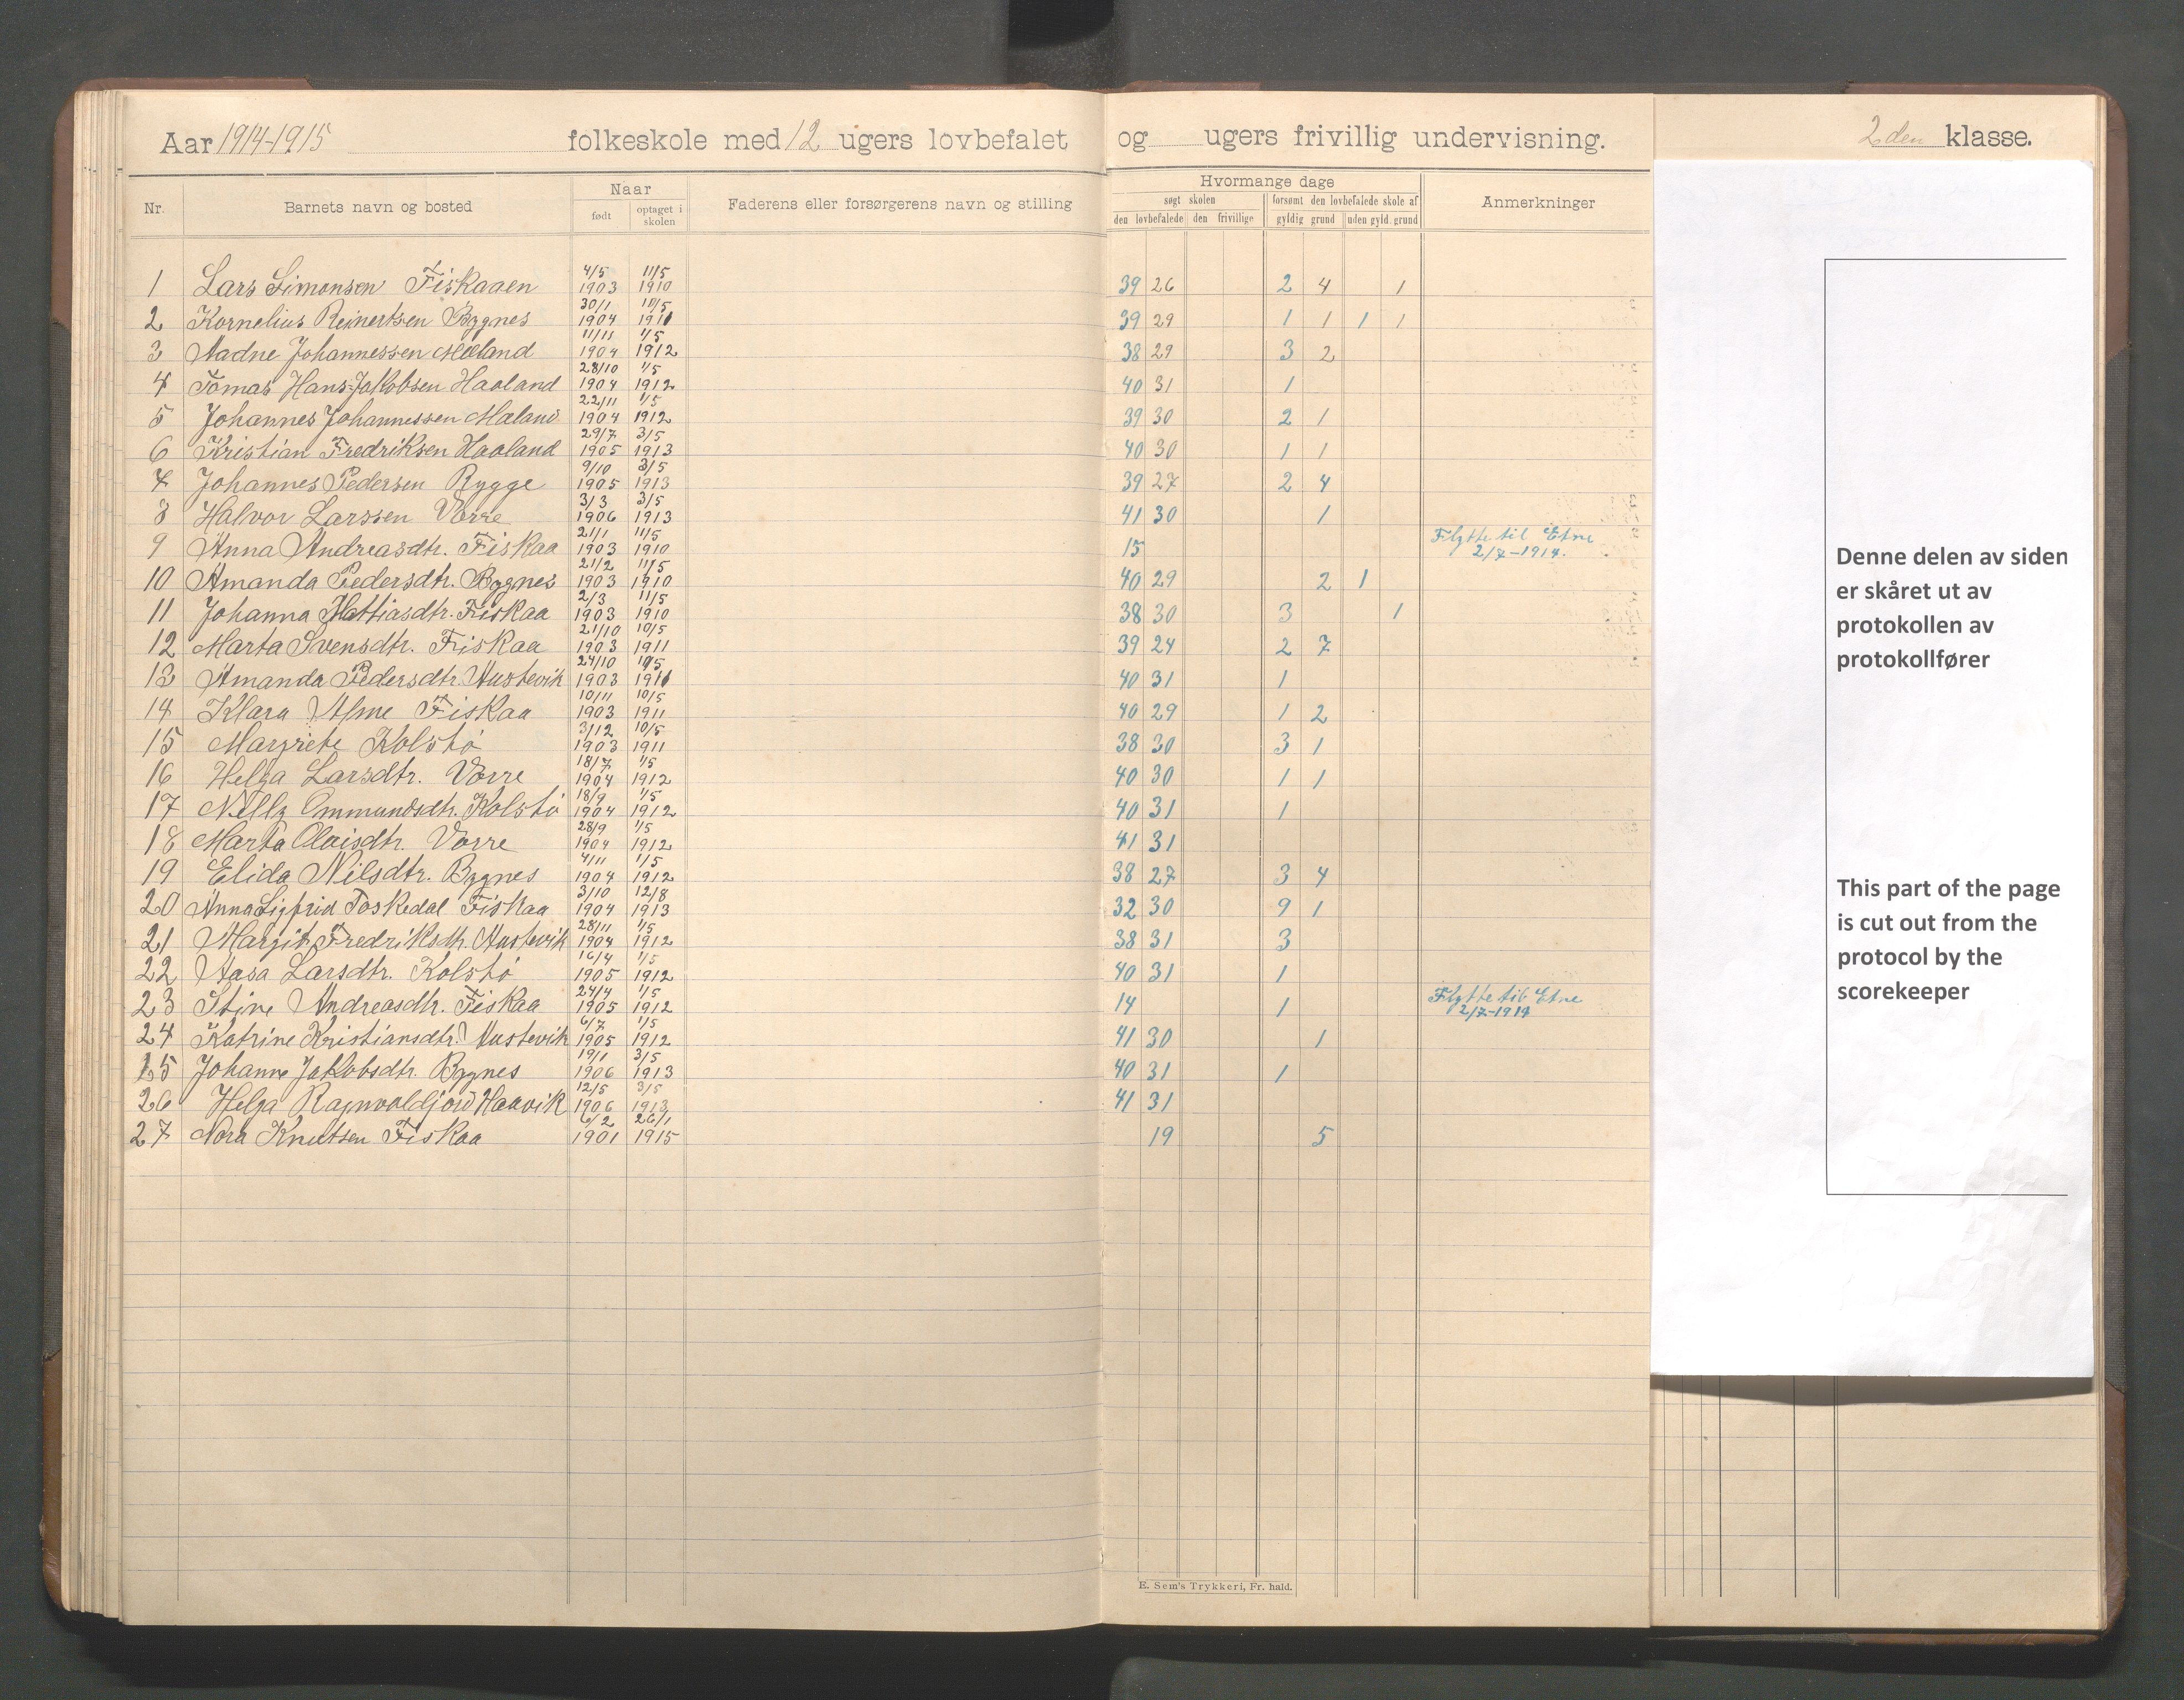 Aar 1914-1915 folkeskole med 12 ugers lovbefalet og ugers frivillig undervisning. 2den klasse.
Nr. Barnets navn og bosted Naar født optaget i skolen Faderens eller forsørgerens navn og stilling Hvormange dage søgt skolen den lovbefalede den frivillige forsømt den lovbefalede skole af gyldig grund uden gyld. grund Anmerkninger
1 Lars Simonsen Fiskaaen 4/5 1903 11/5 1910 39 26 2 4 1
2 Kornelius Reinertsen Bygnes 30/1 1904 10/5 1911 39 29 1 1 1 1
3 Aadne Johannessen Mæland 11/11 1904 1/5 1912 38 29 3 2
4 Tomas Hans Jakobsen Haaland 28/10 1904 1/5 1912 40 31 1
5 Johannes Johannessen Mæland 22/11 1904 1/5 1912 39 30 2 1
6 Kristian Fredriksen Haaland 29/7 1905 3/5 1913 40 30 1 1
7 Johannes Pedersen Rygge 9/10 1905 3/5 1913 39 27 2 4
8 Halvor Larssen Vorre 3/3 1906 3/5 1913 41 30 1
9 Anna Andreasdtr. Fiskaa 21/1 1903 11/5 1910 15 Flytte til Etne 2/7-1914.
10 Amanda Pedersdtr. Bygnes 21/2 1903 11/5 1910 40 29 2 1
11 Johanna Mattiasdtr. Fiskaa 2/3 1903 11/5 1910 38 30 3 1
12 Marta Svensdtr. Fiskaa 21/10 1903 10/5 1911 39 24 2 7
13 Amanda Pedersdtr. Austevik 24/10 1903 10/5 1911 40 31 1
14 Klara Alme Fiskaa 10/11 1903 10/5 1911 40 29 1 2
15 Margrete Kolstø 3/12 1903 10/5 1911 38 30 3 1
16 Helga Larsdtr. Vorre 18/7 1904 1/5 1912 40 30 1 1
17 Nelly Ommundsdtr. Kolstø 18/9 1904 1/5 1912 40 31 1
18 Marta Olaisdtr. Vorre 28/9 1904 1/5 1912 41 31
19 Elida Nilsdtr. Bygnes 4/11 1904 1/5 1912 38 27 3 4
20 Anna Sigfrid Toskedal Fiskaa 3/10 1904 12/8 1913 32 30 9 1
21 Margit Fredriksdtr. Austevik 28/11 1904 1/5 1912 38 31 3
22 Aasa Larsdtr. Kolstø 16/4 1905 1/5 1912 40 31 1
23 Stine Andreasdtr. Fiskaa 24/4 1905 1/5 1912 14 1 Flytte til Etne 2/7-1914
24 Katrine Kristiansdtr. Austevik 6/7 1905 1/5 1912 41 30 1
25 Johanne Jakobsdtr. Bygnes 19/1 1906 3/5 1913 40 31 1
26 Helga Ragnvaldjord Haavik 12/5 1906 3/5 1913 41 31
27 Nora Knutsen Fiskaa 6/2 1901 26/1 1915 19 5
E. Sem's Trykkeri, Fr. hald.
Denne delen av siden
er skåret ut av
protokollen av
protokollfører
This part of the page
is cut out from the
protocol by the
scorekeeper